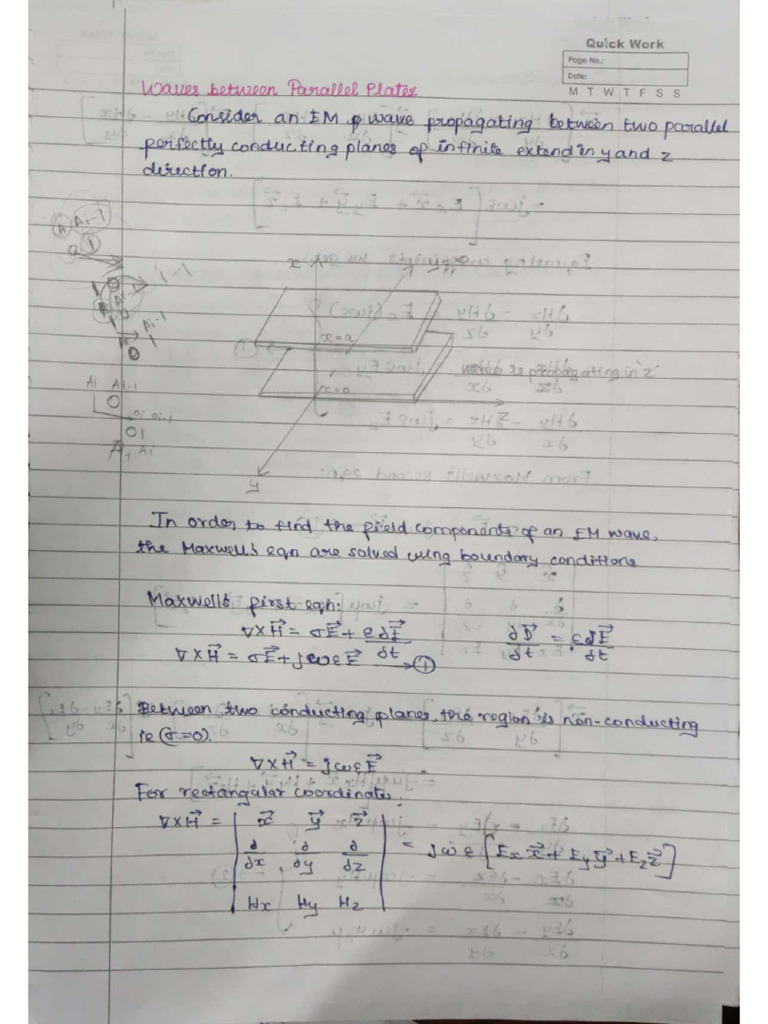 Quick Work
Page No.:
Date:
M T W T F S S
Waves between Parallel Plates
Consider an EM wave propagating between two parallel
perfectly conducting planes of infinite extend in y and z
direction.
x
x=a
wave is propagating in 'z'
x=0
z
y
In order to find the field components of an EM wave,
the Maxwell's eqn are solved using boundary conditions
Maxwell's first eqn:
∇×H⃗ = σE⃗ + ε∂E⃗/∂t    ∂D⃗/∂t = ε∂E⃗/∂t
∇×H⃗ = σE⃗ + jωεE⃗ → ①
Between two conducting planes, the region is non-conducting
ie (σ=0).
∇×H⃗ = jωεE⃗
For rectangular coordinate,
∇×H⃗ = | x⃗ y⃗ z⃗ |
| ∂/∂x ∂/∂y ∂/∂z | = jωε [Ex x⃗ + Ey y⃗ + Ez z⃗]
| Hx Hy Hz |